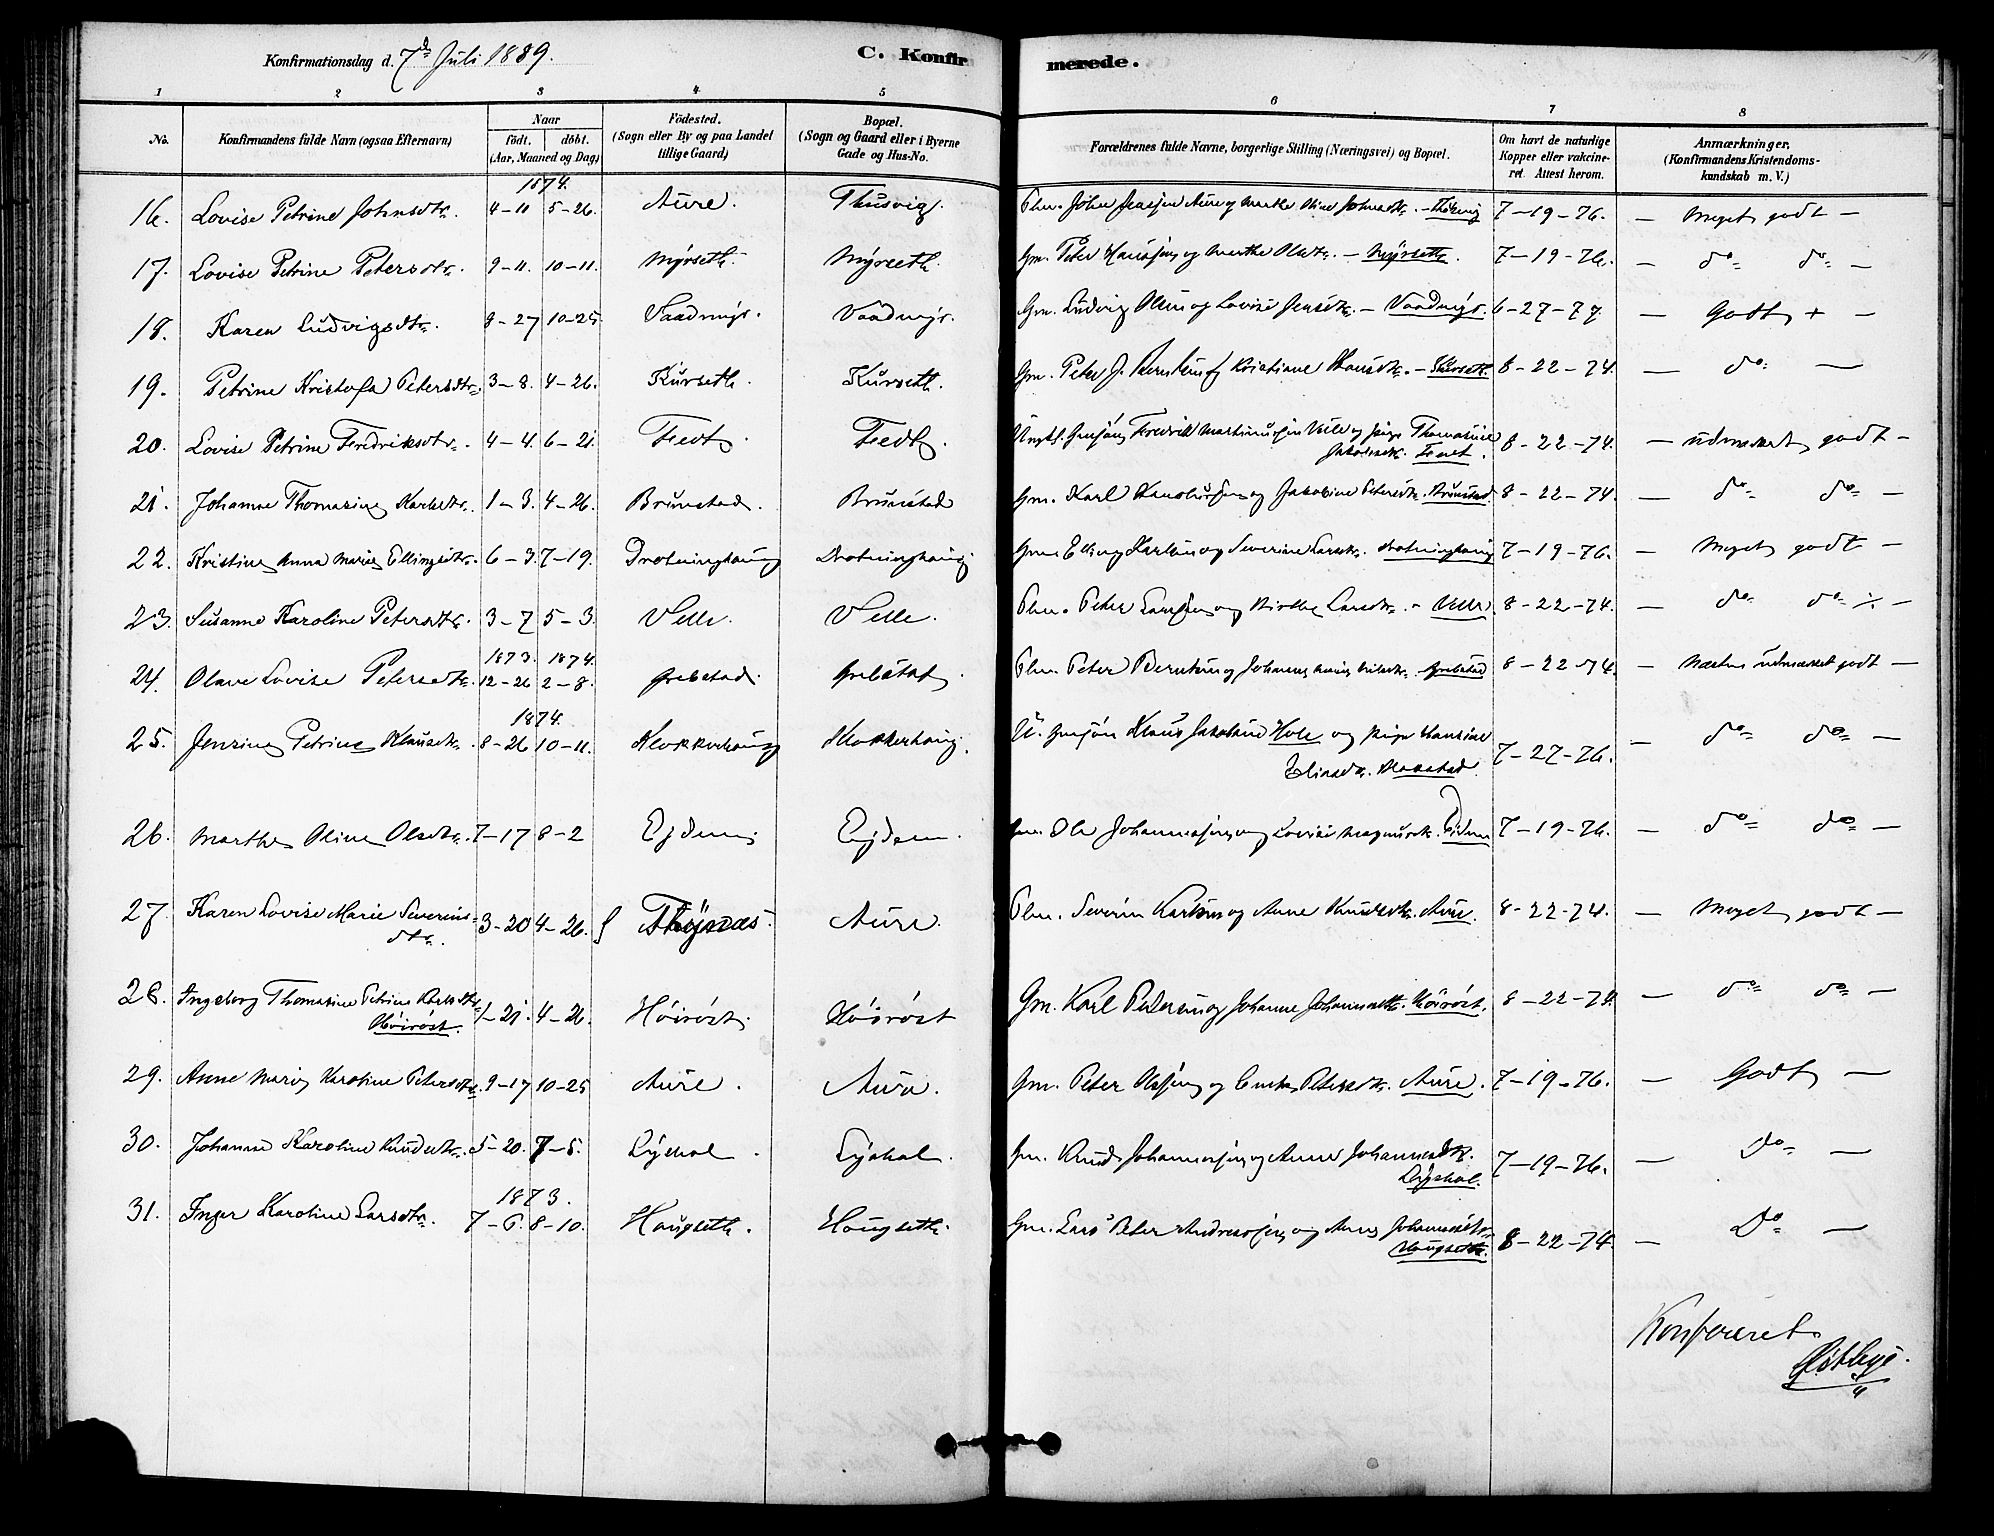 Konfirmationsdag d. 7de Juli 1889.
C. Konfirmerede.
1 2 3 4 5 6 7 8
No.
Konfirmandens fulde Navn (ogsaa Efternavn)
Naar
födt. döbt.
(Aar, Maaned og Dag)
Födested.
(Sogn eller By og paa Landet
tillige Gaard)
Bopæl.
(Sogn og Gaard eller i Byerne
Gade og Hus-No.
Forældrenes fulde Navne, borgerlige Stilling (Næringsvei) og Bopæl.
Om havt de naturlige
Kopper eller vakcine-
ret. Attest herom.
Anmærkninger.
(Konfirmandens Kristendoms-
kundskab m. V.)
1874.
16. Lovise Petrine Johnsdtr. 4-11 5-26. Aure. Thusvig. 7-19-76. - Meget godt -
17. Lovise Petrine Petersdtr. 9-11. 10-11. Myrseth. Myrseth. Gm. Peter Hansen og Marthe Olsdtr. - Myrseth. 7-19-76. - do do -
18. Karen Ludvigsdtr. 8-27 10-25 Vaadmyr. Vaadmyr. Gm. Ludvig Olsen og Lovise Jensdtr. - Vaadmyr. 6-27-77. - Godt + -
19. Petrine Kristofa Petersdtr. 3-8. 4-26. Kurseth. Kurseth. Gm. Peter J. Berntsen og Kristiane Hansdtr. - Kurseth. 8-22-74. - do -
20. Lovise Petrine Fredriksdtr. 4-4. 6-21. Tredt. Tredt. Ungk. Fredrik Martinussen Velle og Pige Thomasine
Jakobsdtr. 8-22-74. - udmærket godt -
21. Johanne Thomasine Karlsdtr. 1-3. 4-26. Brunstad. Brunstad Gm. Karl og Jakobine Petersdtr. Brunstad 8-22-74. - do do -
22. Kristine Anna Marie Ellingsdtr. 6-3. 7-19. Drotninghaug Drotninghaug Gm. Elling Karlsen og Severine Larsdtr. Drotninghaug 7-19-76. - Meget godt -
23. Susanne Karoline Petersdtr. 3-7 5-3. Velle. Velle. Pm. Peter Larssen og Larsdtr. - Velle. 8-22-74. - do do -
1873. 1874.
24. Olave Lovise Petersdtr. 12-26 2-8. Grebstad. Grebstad. Pm. Peter Berntsen og Johanne Grebstad 8-22-74. - Næsten udmærket godt -
1874.
25. Jensine Petrine Klausdtr. 8-26 10-11. Klokkerhaug Klokkerhaug. Klaus Jakobsen Hole og Pige Hansine
Elinsdtr. 7-27-76. - do do -
26. Marthe Oline Olsdtr. 7-17 8-2 Ejdem Ejdem. Gm. Ole Johannessen og Lovise Magnusdtr. Eidem 7-19-76. - do do -
27. Karen Lovise Marie Severins-
dtr. 3-20 4-26. Thynæs. Aure. Pm. Severin Karlsen og Anne Knudsdtr. Aure. 8-22-74. - Meget godt -
28. Ingeborg Thomasine Petrine Karlsdtr.
Höiröst. 1-21. 4-26. Höiröst. Höiröst Gm. Karl Petersen og Johanne Johannesdtr. Höiröst. 8-22-74. - do do -
29. Anne Marie Karoline Petersdtr. 9-17 10-25 Aure. Aure. Gm. Peter Olsen og Petersdtr. Aure. 7-19-76. - Godt -
30. Johanne Karoline Knudsdtr. 5-20. 7-5. Lyshol. Lyshol. Gm. Knud Johannessen og Anne Johannesdtr.
Lyshol. 7-19-76. - do -
1873.
31. Inger Karoline Larsdtr. 7-6. 8-10. Haugseth. Haugseth. Gm. Lars Peter Andreassen og Anne Johannesdtr.
Haugseth. 8-22-74. - Do -
Konfereret